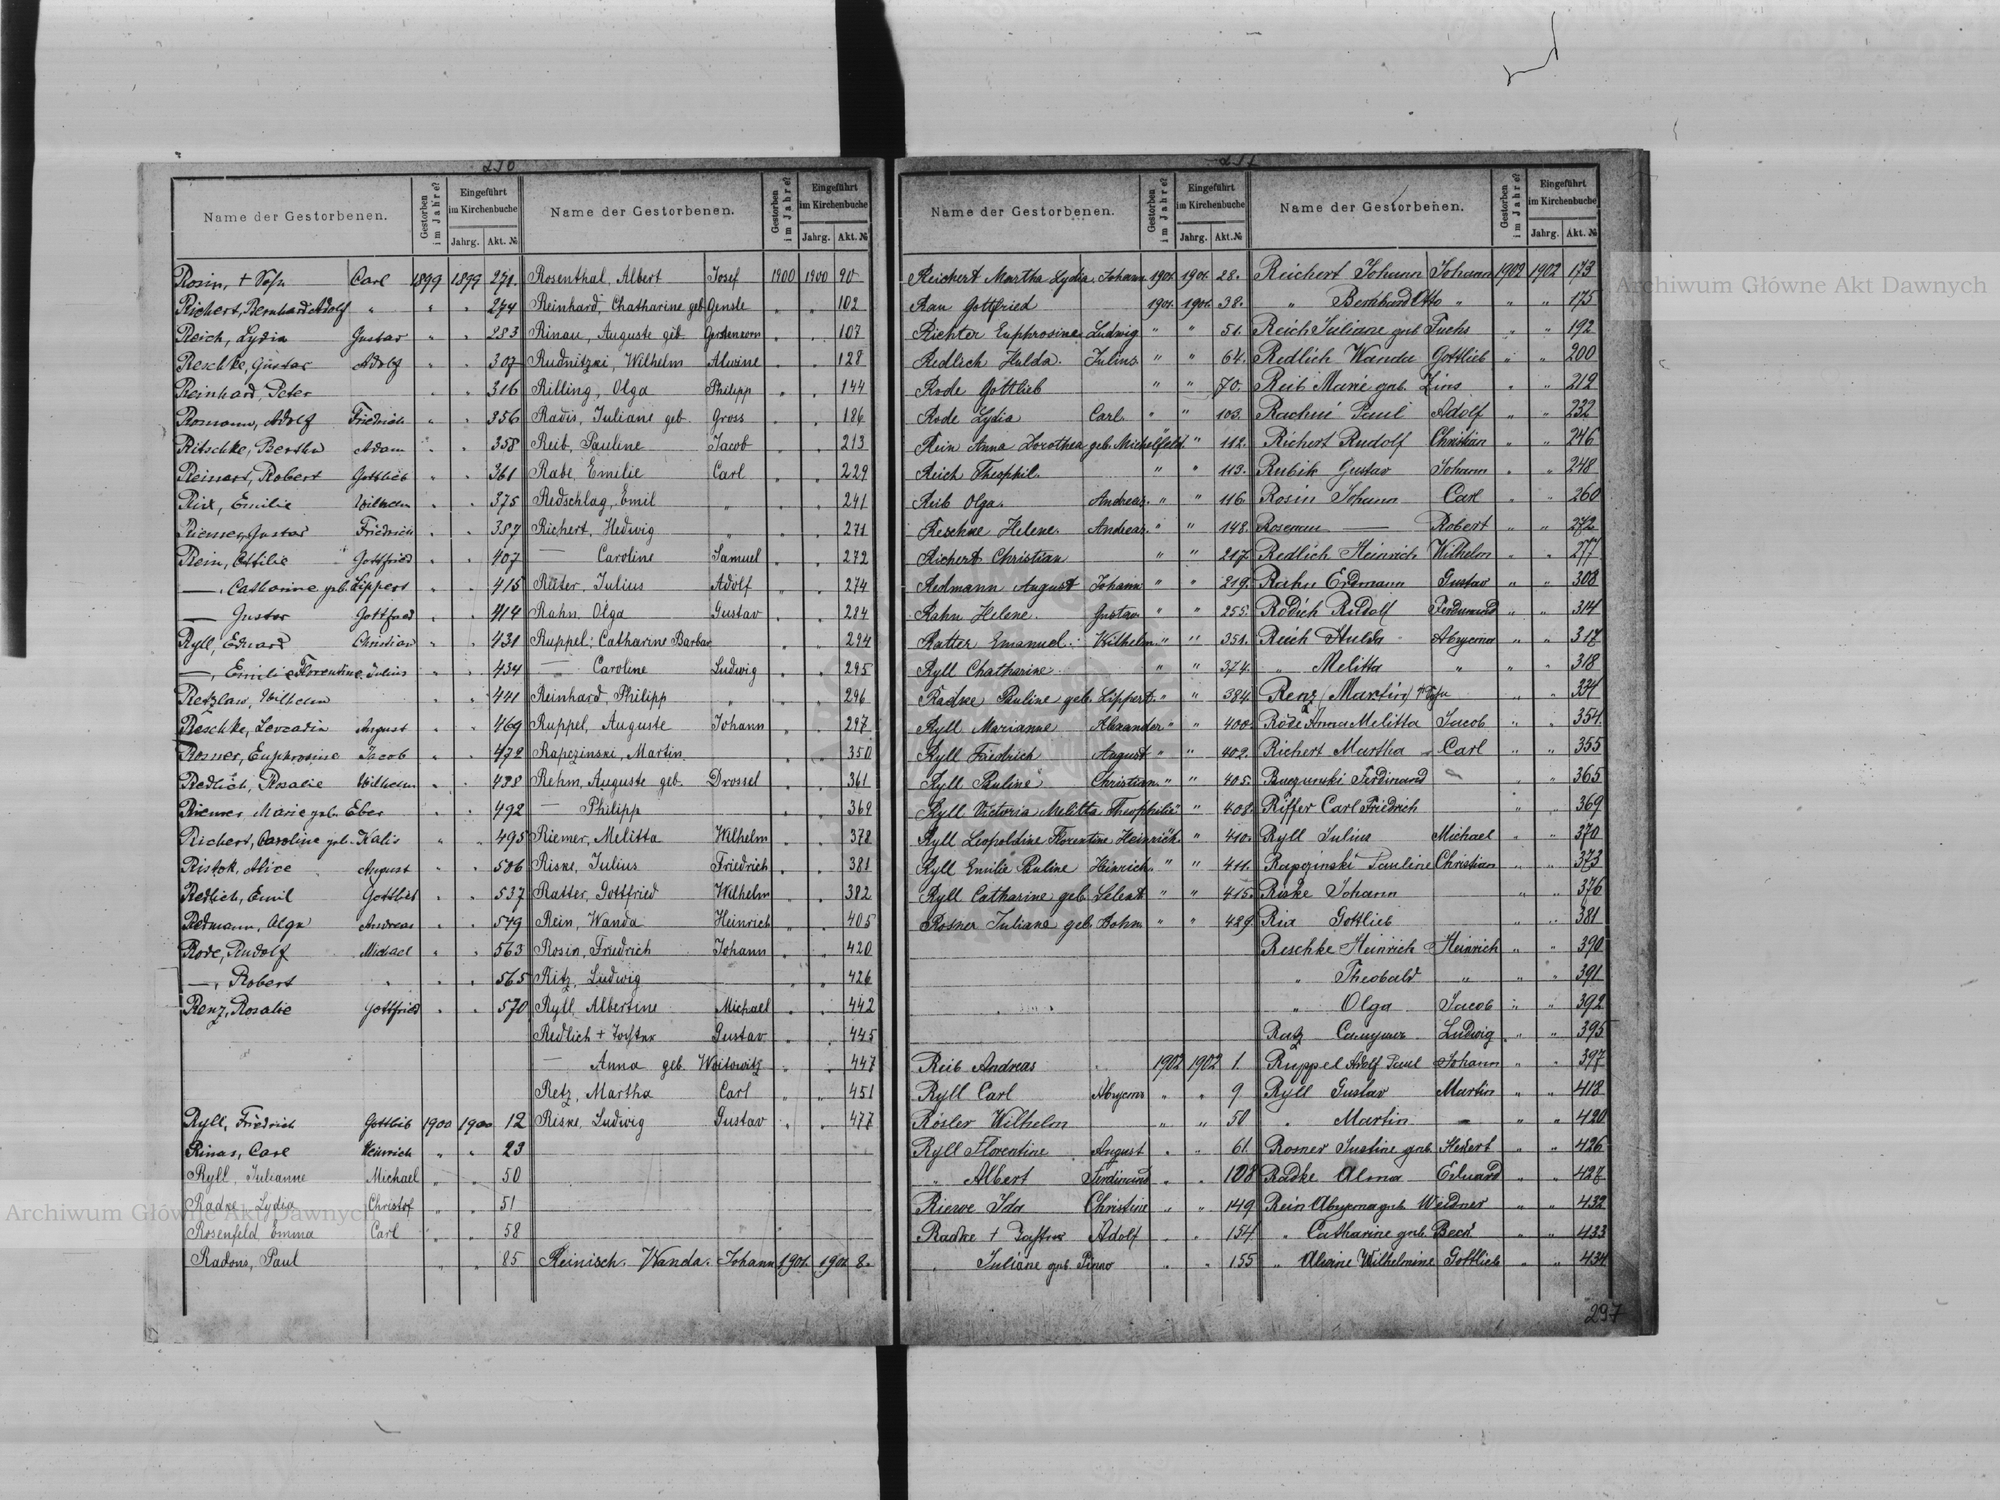 230
Name der Gestorbenen. Gestorben im Jahre? Eingeführt im Kirchenbuche Jahrg. Akt. №
Rosin, + Sohn Carl 1899 1899 271.
Richert, Bernhard Adolf " " " 274
Reich, Lydia Gustav " " 283
Reschke, Gustav Adolf " " 307
Reinhard, Peter " " 316
Romann, Adolf Friedrich " " 356
Ritschke, Bertha Adam " " 358
Reinert, Robert Gottlieb " " 361
Rix, Emilie Wilhelm " " 375
Riemer, Gustav Friedrich " " 387
Rein, Ottilie Gottfried " " 407
—, Catharine geb. Lippert " " 415
— Gustav Gottfried " " 414
Ryll, Eduard Christian " " 431
—, Emilie Florentine Julius " " 434
Retzlaw, Wilhelm " " 441
Reschke, Leocadia August " " 469
Rosner, Euphrosine Jacob " " 472
Redlich, Rosalie Wilhelm " " 488
Riemer, Marie geb. Eber " " 492
Richert, Caroline geb. Kalis " " 495
Ristok, Alice August " " 506
Redlich, Emil Gottlieb " " 537
Redmann, Olga Andreas " " 549
Rode, Rudolf Michael " " 563
—, Robert " " " 565
Renz, Rosalie Gottfried " " 570
Ryll, Friedrich Gottlieb 1900 1900 12
Rinas, Carl Heinrich " " 23
Ryll, Julianne Michael " " 50
Radke Lydia Christof " " 51
Rosenfeld Emma Carl " " 58
Radons, Paul " " 85
Name der Gestorbenen. Gestorben im Jahre? Eingeführt im Kirchenbuche Jahrg. Akt. №
Rosenthal, Albert Josef 1900 1900 90
Reinhard, Chatharine geb. Gensle " " 102
Rinau, Auguste geb. Gerstenkorn " " 107
Rudnitzki, Wilhelm Alwine " " 128
Rilling, Olga Philipp " " 144
Radis, Juliane geb. Gross " " 186
Reib, Pauline Jacob " " 213
Rabe, Emelie Carl " " 229
Redschlag, Emil " " " 241
Richert, Hedwig " " " 271
— Caroline Samuel " " 272
Räter, Julius Adolf " " 274
Rahn, Olga Gustav " " 284
Ruppel, Catharine Barbar " " 294
— Caroline Ludwig " " 295
Reinhard, Philipp " " " 296
Ruppel, Auguste Johann " " 297
Rapczinski, Martin " " 350
Rehm, Auguste geb. Drossel " " 361
— Philipp " " 369
Riemer, Melitta Wilhelm " " 378
Riske, Julius Friedrich " " 381
Ratter, Gottfried Wilhelm " " 382
Rein, Wanda Heinrich " " 405
Rosin, Friedrich Johann " " 420
Ritz, Ludwig " " 426
Ryll, Albertine Michael " " 442
Redlich + Tochter Gustav " " 445
— Anna geb. Woitowitz " " 447
Retz, Martha Carl " " 451
Riske, Ludwig Gustav " " 477
Reinisch. Wanda. Johann 1901. 1901. 8.
231
Name der Gestorbenen. Gestorben im Jahre? Eingeführt im Kirchenbuche Jahrg. Akt. №
Reichert Martha Lydia. Johann 1901. 1901. 28.
Rau Gottfried 1901. 1901. 38.
Richter Euphrosine Ludwig " " 51.
Redlich Hulda. Julius " " 64.
Rode Gottlieb " " 70.
Rode Lydia Carl. " " 103.
Rein Anna Dorothea geb. Michelfeld. " 112.
Reich Theophil. " " 113.
Reib Olga. Andreas. " " 116.
Reschke Helene. Andreas. " " 148.
Richert Christian " " 217.
Redmann August Johann " " 219.
Rahn Helene. Gustav " " 255.
Ratter Emanuel. Wilhelm " " 351.
Ryll Chatharine. " " 374.
Radke Pauline geb. Lippert. " " 384.
Ryll Marianne Alexander " " 400.
Ryll Friedrich August " " 402.
Ryll Pauline Christian " " 405.
Ryll Victoria Melitta Theophile " " 408.
Ryll Leopoldine Florentine Heinrich. " 410.
Ryll Emilie Pauline Heinrich. " " 411.
Ryll Catharine geb. " " 415.
Rosner Juliane geb. Bohm " " 429.
Reib Andreas 1902 1902 1.
Ryll Carl " " 9
Rösler Wilhelm " " 50
Ryll Florentine August " " 61.
" Albert Ferdinand " " 108
Rierve Ida Christine " " 149
Radke + Adolf " " 154
" Juliane geb. Pinno " " 155
Name der Gestorbenen. Gestorben im Jahre? Eingeführt im Kirchenbuche Jahrg. Akt. №
Reichert Johann Johann 1902 1902 173
" Bernhard Otto " " " 175
Reich Juliane geb. Fuchs " " 192
Redlich Wanda Gottlieb " " 200
Reib Marie geb. Zins " " 219
Rachui Paul Adolf " " 232
Richert Rudolf Christian " " 246
Rubik Gustav Johann " " 248
Rosin Johann Carl " " 260
Rosenau — Robert " " 272
Redlich Heinrich Wilhelm " " 277
Rahn Erdmann Gustav " " 308
Rodich Rudolf Ferdinand " " 314
Reich Hulda " " 317
" Melitta " " " 318
Renz (Martin) " " 334
Rode Anna Melitta Jacob " " 354.
Richert Martha Carl " " 355
Ferdinand " " 365
Riffer Carl Friedrich " " 369
Ryll Julius Michael " " 370
Rapginski Pauline Christian " " 373
Riske Johann " " 376
Ria Gottlieb " " 381
Reschke Heinrich Heinrich " " 390
" Theobald " " " 391
" Olga Jacob " " 392
Ratz Ludwig " " 395
Ruppel Adolf Paul Johann " " 397
Ryll Gustav Martin " " 418
" Martin " " " 420
Rosner Justine geb. Hekert " " 426
Radke Alma Eduard " " 427
Rein geb. Weidner " " 432
" Catharine geb. Beck " " 433
" Alwine Wilhelmine Gottlieb " " 434
297
Archiwum Główne Akt Dawnych
Archiwum Główne Akt Dawnych